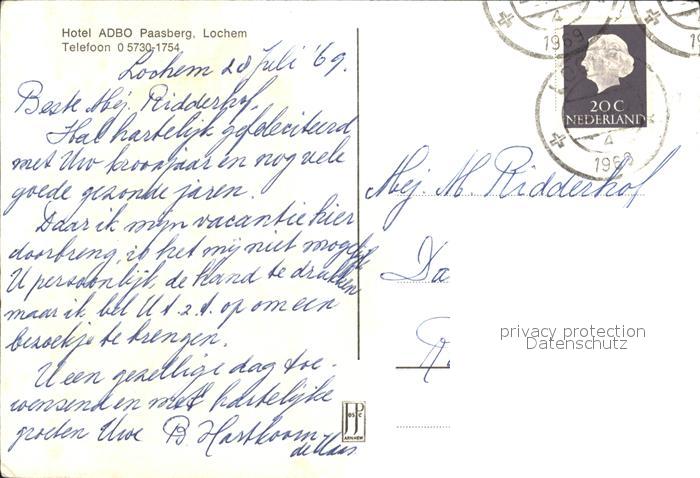 Hotel ADBO Paasberg, Lochem
Telefoon 0 5730-1754
Lochem 28 Juli '69.
Beste Mej. Ridderhof,
Hal hartelijk gefeliciteerd
met Uw kroonjaar en nog vele
goede gezonde jaren.
Daar ik mijn vacantie hier
doorbreng, is het mij niet mogelijk
U persoonlijk de hand te drukken
maar ik bel U t.z.t. op om een
bezoekje te brengen.
U een gezellige dag toe-
wensend en met hartelijke
groeten Uwe B. Hartkoorn
de Haas
20 C
NEDERLAND
4
1969
1969
Mej. M. Ridderhof
Da
privacy protection
Datenschutz
JosPé
ARNHEM